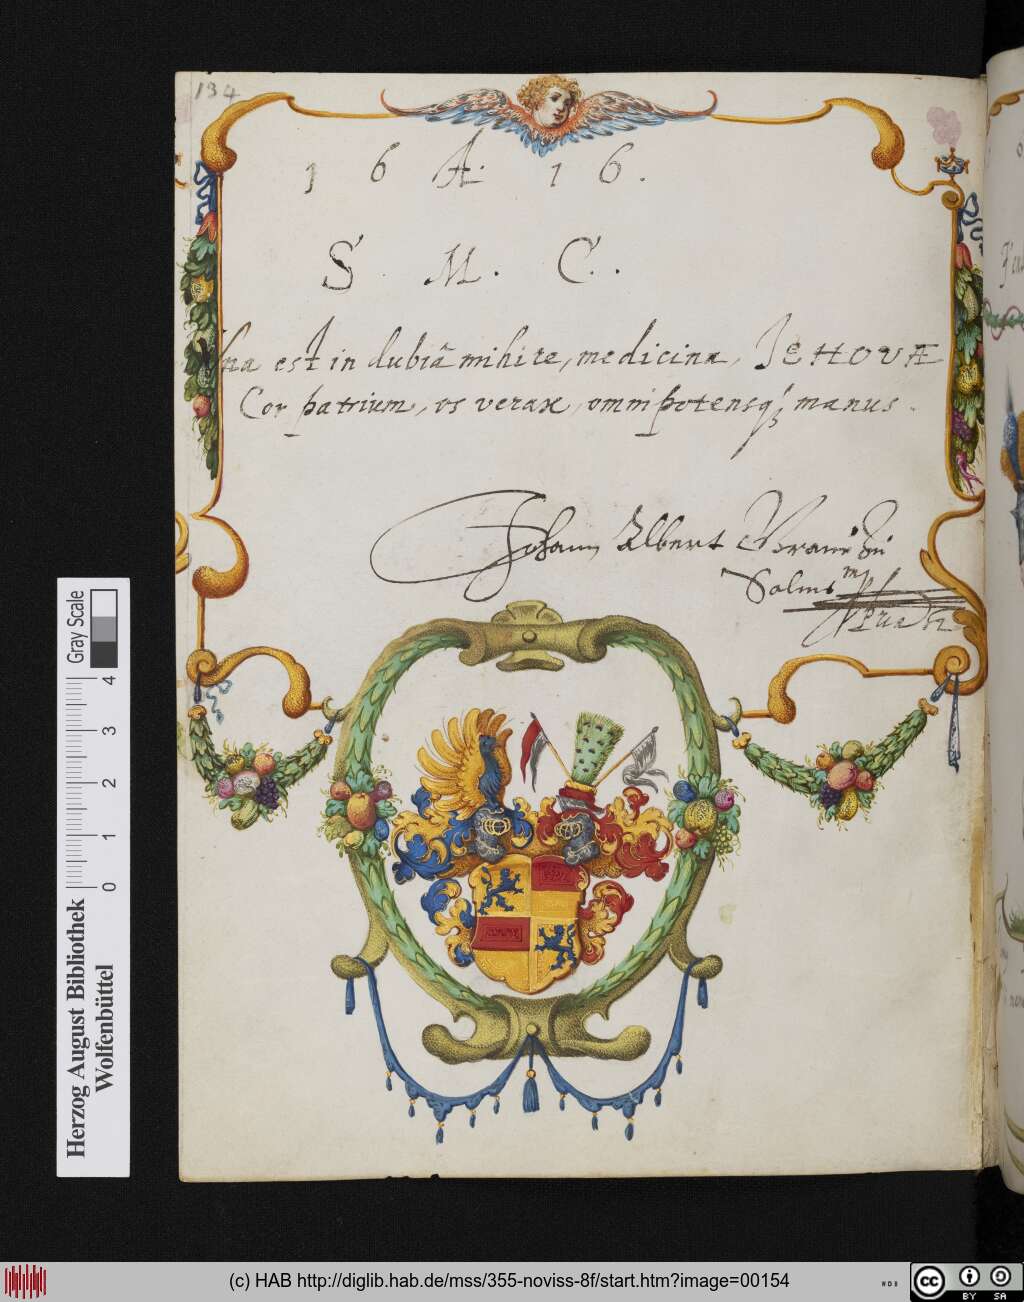 134
1 6 A. 1 6.
S. M. C.
Vna est in dubia mihi re, medicina, JEHOVÆ
Cor patrium, os verax, omnipotensq; manus.
Johann Albert Grave zu
Solms mp
Gray Scale
0 1 2 3 4
Herzog August Bibliothek
Wolfenbüttel
(c) HAB http://diglib.hab.de/mss/355-noviss-8f/start.htm?image=00154
WDB
cc BY SA